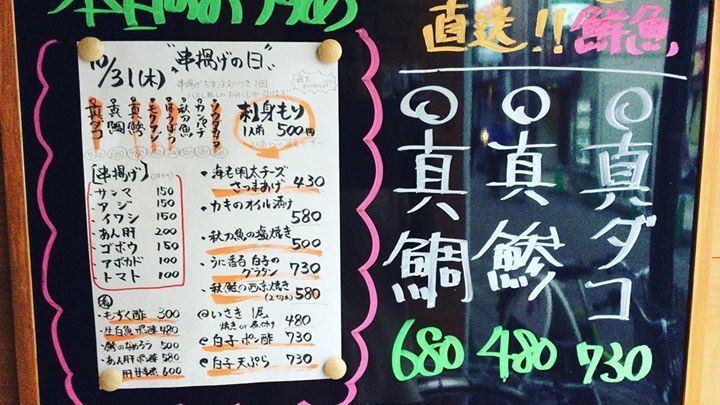 本日のおすすめ
10/31(木)
"串揚げの日"
真ダコ
真鯛
真鯵
刺身もり
1人前 500円
【串揚げ】
サンマ 150
アジ 150
イワシ 150
あん肝 200
ゴボウ 150
アボカド 100
トマト 100
・もずく酢 300
・生白魚ポン酢 480
・鯵のなめろう 500
・あん肝ポン酢 580
肝甘煮 600
・海老明太チーズさつまあげ 430
・カキのオイル漬け 580
・秋刀魚の塩焼き 500
・うに香る白子のグラタン 730
・秋鮭の西京焼き 580
@いさき1尾 焼き or 煮付け 480
@白子ポン酢 730
@白子天ぷら 730
直送!!鮮魚
◎真ダコ 730
◎真鯵 480
◎真鯛 680